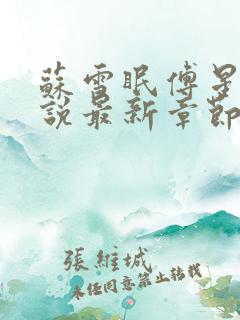 蘇雪眠傅星
說最新章節
張維城
未经同意禁止转载